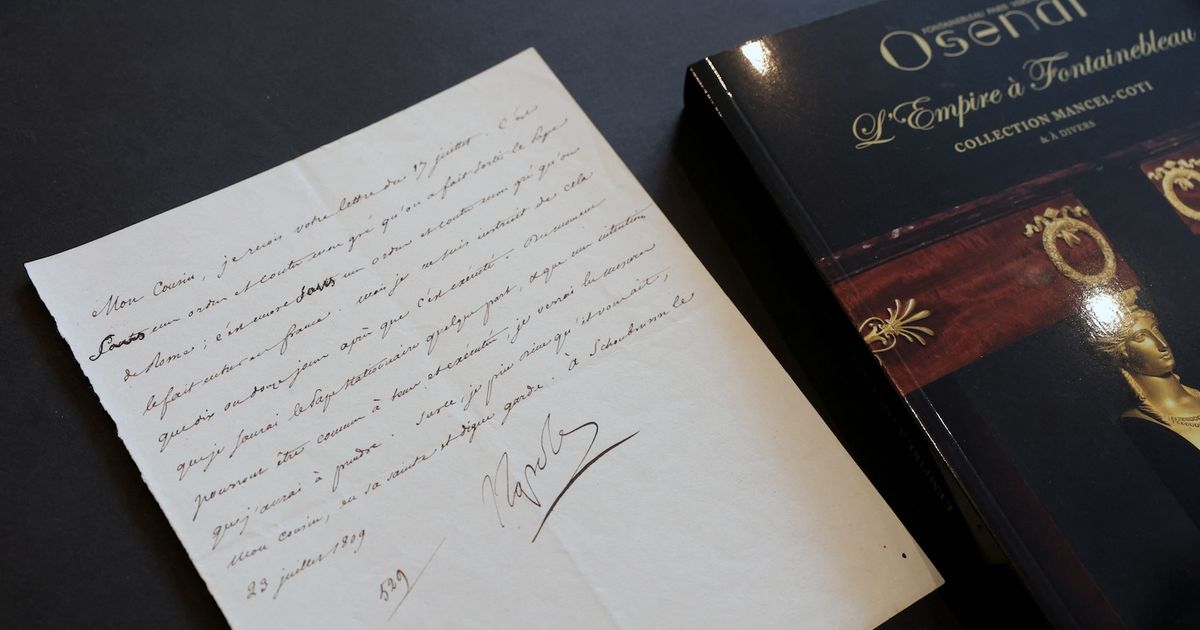 Mon Cousin, je reçois votre lettre du 17 juillet. C'est
sans mon ordre et contre mon gré qu'on a fait sortir le Pape
de Rome; c'est encore sans mon ordre et contre mon gré qu'on
le fait entrer en france. mais je ne suis instruit de cela
que dix ou douze jours après que c'est exécuté. Du moment
que je saurai le Pape stationnaire quelque part, & que mes intentions
pourront être connues à tems et exécutées, je verrai les mesures
que j'aurai à prendre. Sur ce, je prie dieu qu'il vous ait,
mon cousin, en sa sainte et digne garde. à Schonbrunn le
23 juillet 1809
Napole
529
FONTAINEBLEAU PARIS
Osenat
L'Empire à Fontainebleau
COLLECTION MANCEL-COTI
& À DIVERS